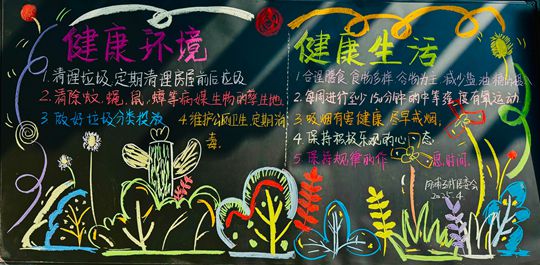 健康环境
1.清理垃圾,定期清理房屋前后垃圾
2.清除蚊、蝇、鼠、蟑等病媒生物的孳生地
3.做好垃圾分类投放
4.维护公厕卫生,定期消
毒。
健康生活
1.合理膳食,食物多样,谷物为主,减少盐油糖
2.每周进行至少150分钟的中等强度有氧运动
3.吸烟有害健康,尽早戒烟,
4.保持积极乐观的心态
5.保持规律的作息时间.
居委会
2025.4